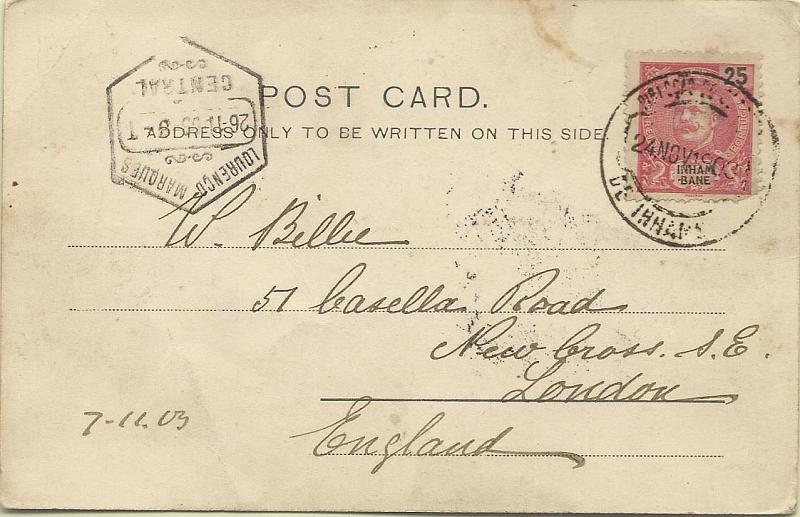 CENTRAL
26-11-03
LOURENÇO MARQUES
POST CARD.
ADDRESS ONLY TO BE WRITTEN ON THIS SIDE
25
INHAM
BANE
24 NOV 190
DE INHAM
W. Billie
51 Casella Road
New Cross. S.E.
London
England
7-11.03